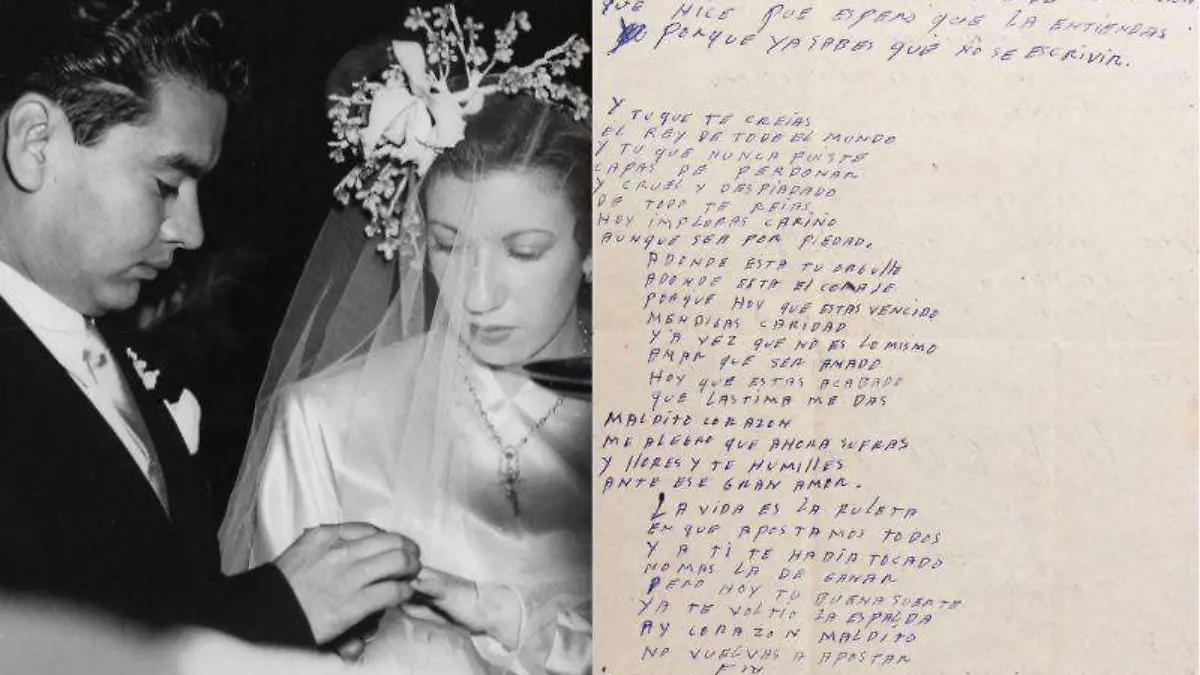 QUE HICE QUE ESPERO QUE LA ENTIENDAS
PORQUE YA SABES QUE NO SE ESCRIVIR.
Y TU QUE TE CREIAS
EL REY DE TODO EL MUNDO
Y TU QUE NUNCA FUISTE
CAPAS DE PERDONAR
Y CRUEL Y DESPIADADO
DE TODO TE REIAS
HOY IMPLORAS CARIÑO
AUNQUE SEA POR PIEDAD.
ADONDE ESTA TU ORGULLO
ADONDE ESTA EL CORAJE
PORQUE HOY QUE ESTAS VENCIDO
MENDIGAS CARIDAD
YA VEZ QUE NO ES LO MISMO
AMAR QUE SER AMADO
HOY QUE ESTAS ACABADO
QUE LASTIMA ME DAS
MALDITO CORAZON
ME ALEGRO QUE AHORA SUFRAS
Y LLORES Y TE HUMILLES
ANTE ESE GRAN AMOR.
LA VIDA ES LA RULETA
EN QUE APOSTAMOS TODOS
Y A TI TE HABIA TOCADO
NO MAS LA DE GANAR
PERO HOY TU BUENA SUERTE
YA TE VOLTIO LA ESPALDA
AY CORAZON MALDITO
NO VUELVAS A APOSTAR
FIN